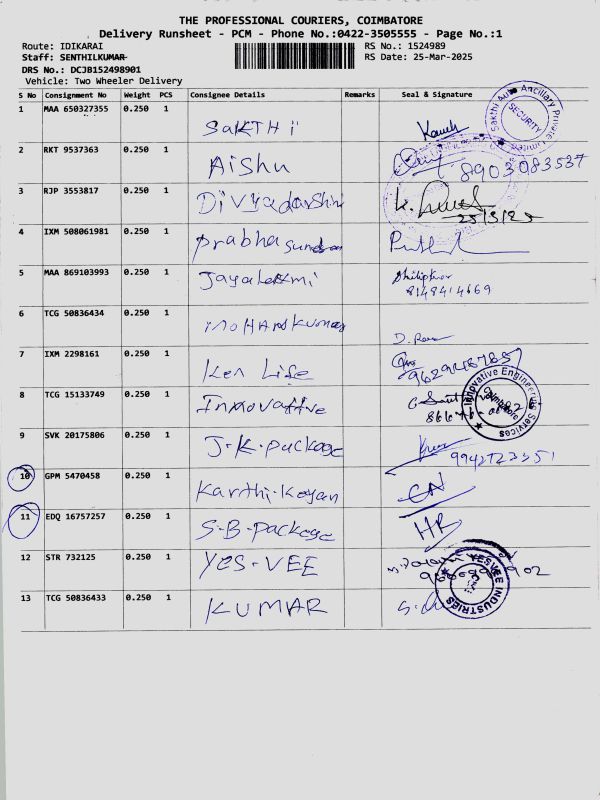 THE PROFESSIONAL COURIERS, COIMBATORE
Delivery Runsheet - PCM - Phone No.:0422-3505555 - Page No.:1
Route: IDIKARAI
RS No.: 1524989
Staff: SENTHILKUMAR
RS Date: 25-Mar-2025
DRS No.: DCJB152498901
Vehicle: Two Wheeler Delivery
S No Consignment No Weight PCS Consignee Details Remarks Seal & Signature
1 MAA 650327355 0.250 1 SAKTHi
Sakthi Auto Ancillary Private Limited
SECURITY
2 RKT 9537363 0.250 1 Aishu 8903083537
3 RJP 3553817 0.250 1 Divyadarshini
25/3/25
4 IXM 508061981 0.250 1 Prabha sundaran
5 MAA 869103993 0.250 1 Jayalakmi
8148414669
6 TCG 50836434 0.250 1 MOHANKUMAR
7 IXM 2298161 0.250 1 Ken Life 9629487857
8 TCG 15133749 0.250 1 Innovative
Innovative Engineering Services
Coimbatore
9 SVK 20175806 0.250 1 J.K.package
10 GPM 5470458 0.250 1 Karthi-Keyan
11 EDQ 16757257 0.250 1 S-B-Package HR
12 STR 732125 0.250 1 YES-VEE
YESVEE INDUSTRIES
13 TCG 50836433 0.250 1 KUMAR